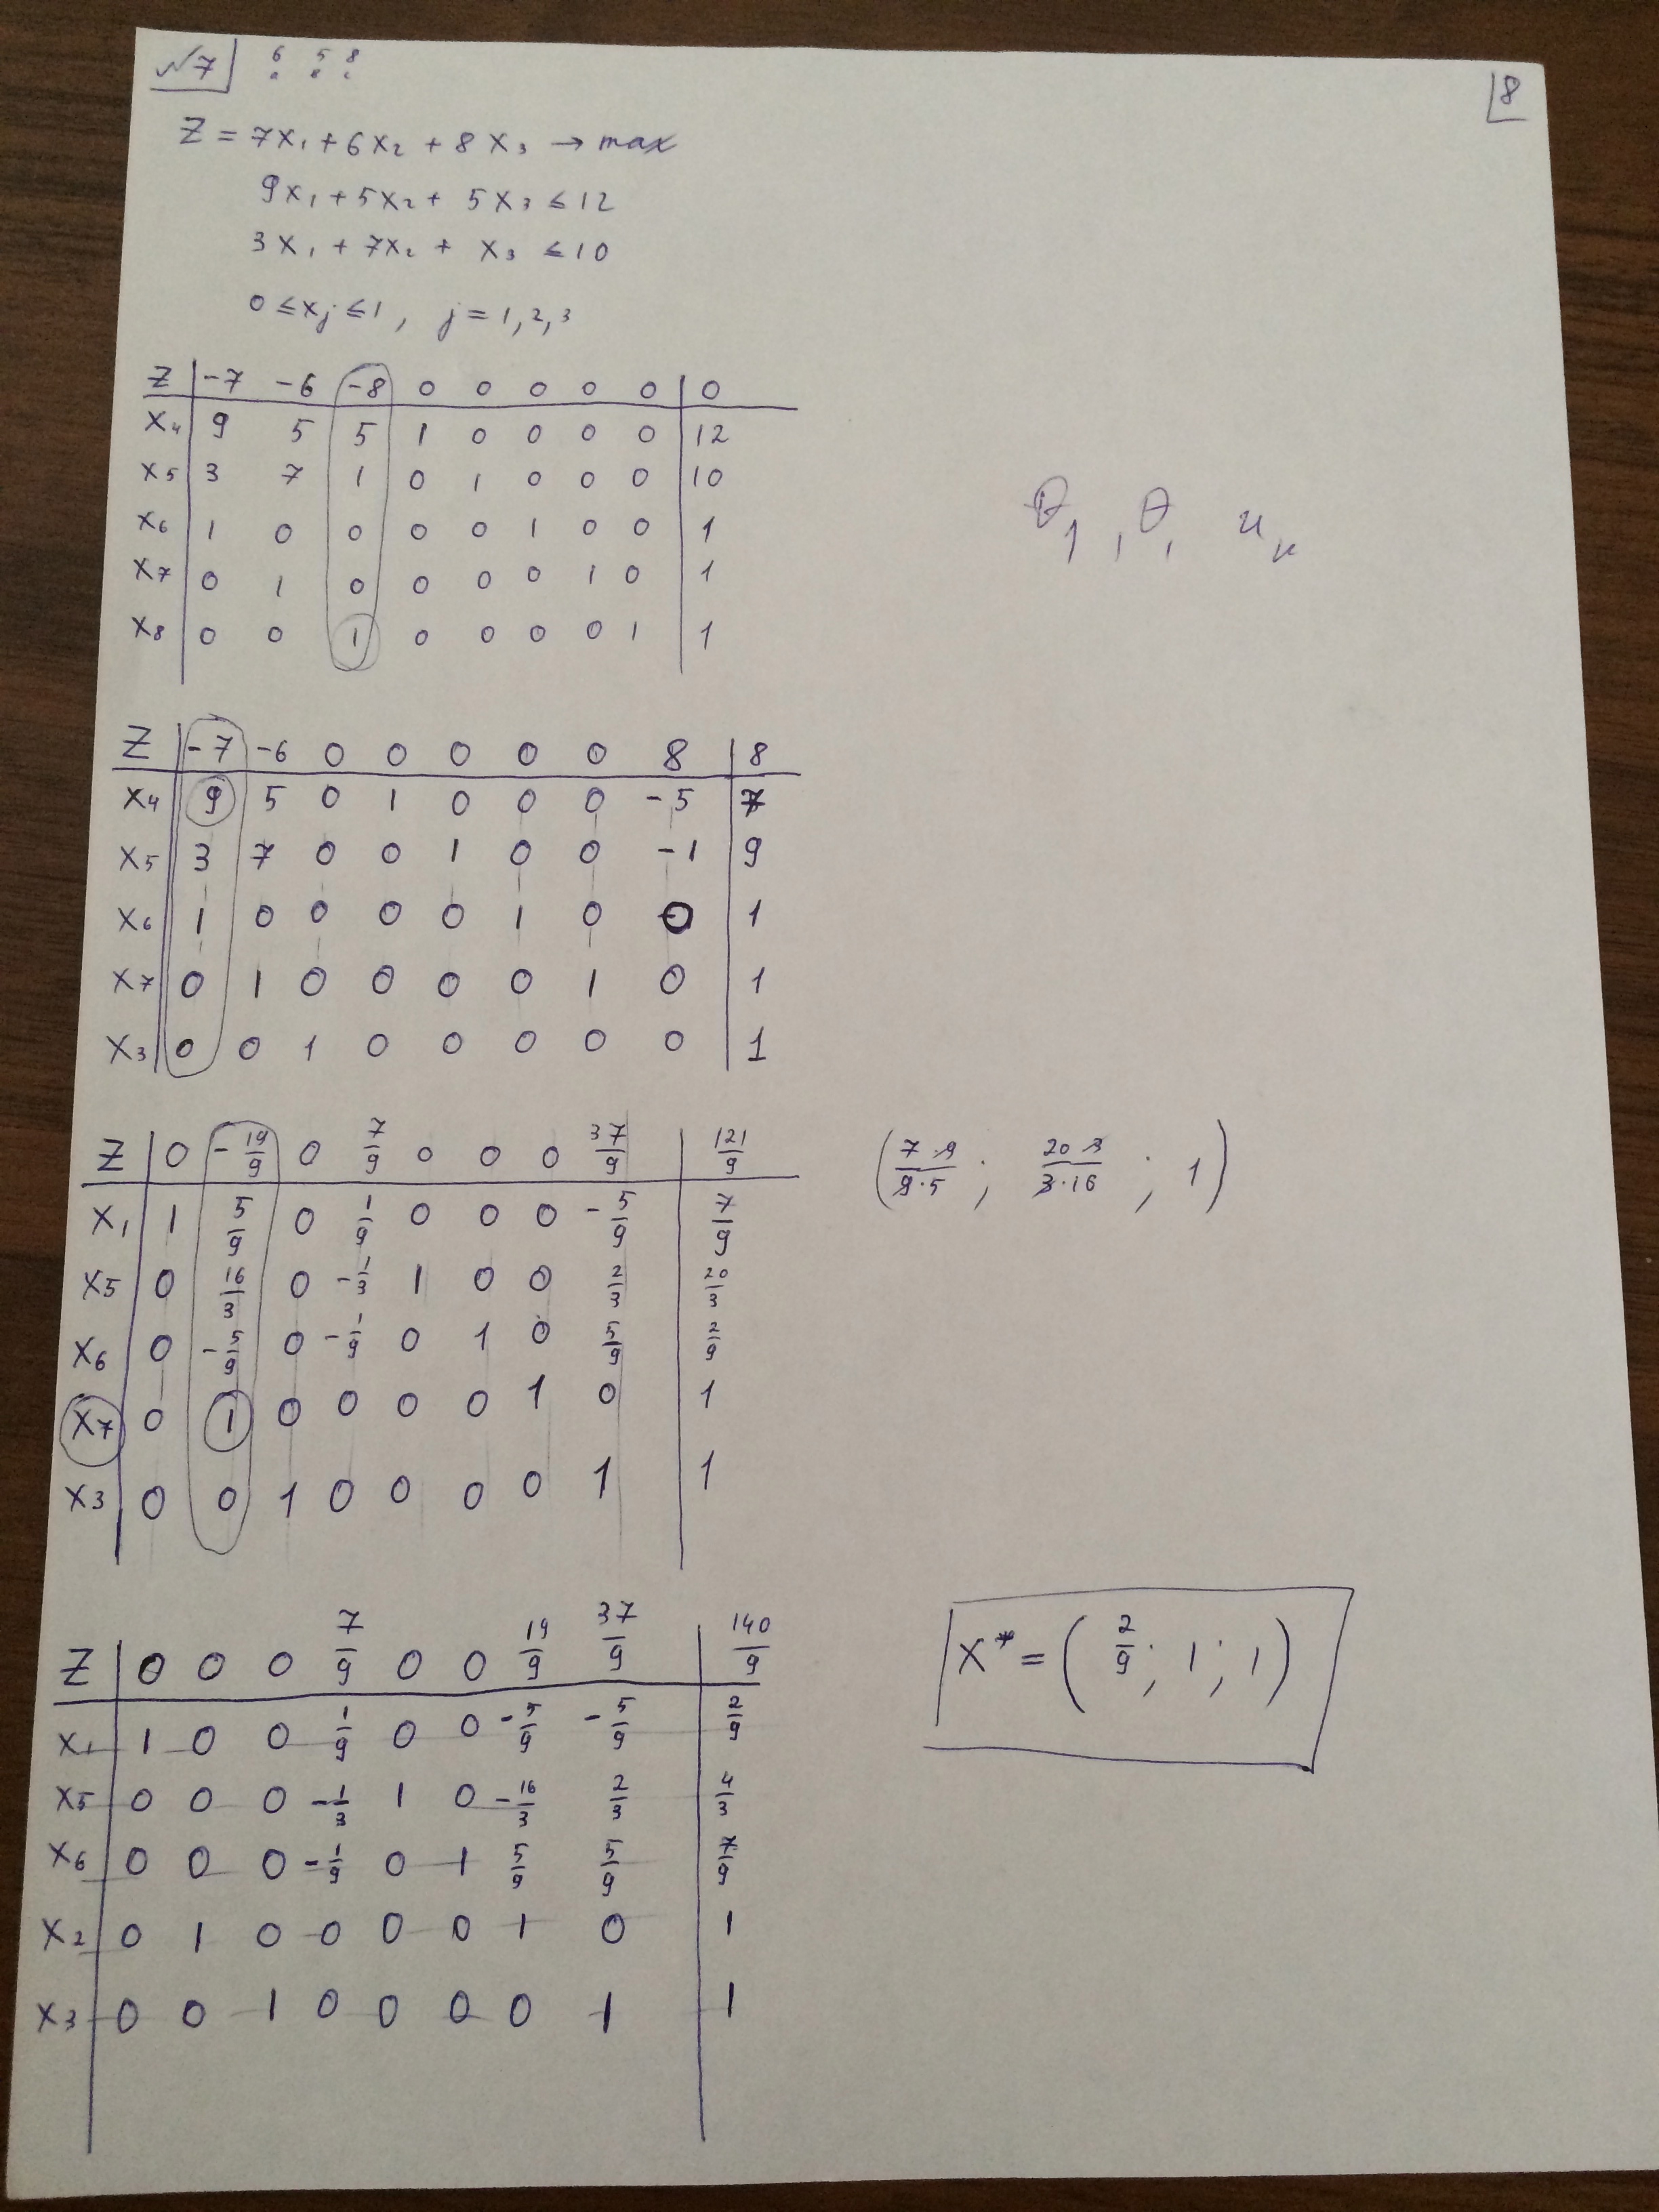 №7 6 5 8
a в с
8
Z = 7x₁ + 6x₂ + 8x₃ → max
9x₁ + 5x₂ + 5x₃ ≤ 12
3x₁ + 7x₂ + x₃ ≤ 10
0 ≤ xⱼ ≤ 1, j = 1, 2, 3
Z | -7 -6 -8 0 0 0 0 0 | 0
x₄ | 9 5 5 1 0 0 0 0 | 12
x₅ | 3 7 1 0 1 0 0 0 | 10
x₆ | 1 0 0 0 0 1 0 0 | 1
x₇ | 0 1 0 0 0 0 1 0 | 1
x₈ | 0 0 1 0 0 0 0 1 | 1
Z | -7 -6 0 0 0 0 0 8 | 8
x₄ | 9 5 0 1 0 0 0 -5 | 7
x₅ | 3 7 0 0 1 0 0 -1 | 9
x₆ | 1 0 0 0 0 1 0 0 | 1
x₇ | 0 1 0 0 0 0 1 0 | 1
x₃ | 0 0 1 0 0 0 0 0 | 1
Z | 0 -19/9 0 7/9 0 0 0 37/9 | 121/9
x₁ | 1 5/9 0 1/9 0 0 0 -5/9 | 7/9
x₅ | 0 16/3 0 -1/3 1 0 0 2/3 | 20/3
x₆ | 0 -5/9 0 -1/9 0 1 0 5/9 | 2/9
x₇ | 0 1 0 0 0 0 1 0 | 1
x₃ | 0 0 1 0 0 0 0 1 | 1
(7·9/9·5; 20·3/3·16; 1)
Z | 0 0 0 7/9 0 0 19/9 37/9 | 140/9
x₁ | 1 0 0 1/9 0 0 -5/9 -5/9 | 2/9
x₅ | 0 0 0 -1/3 1 0 -16/3 2/3 | 4/3
x₆ | 0 0 0 -1/9 0 1 5/9 5/9 | 7/9
x₂ | 0 1 0 0 0 0 1 0 | 1
x₃ | 0 0 1 0 0 0 0 1 | 1
X* = (2/9; 1; 1)